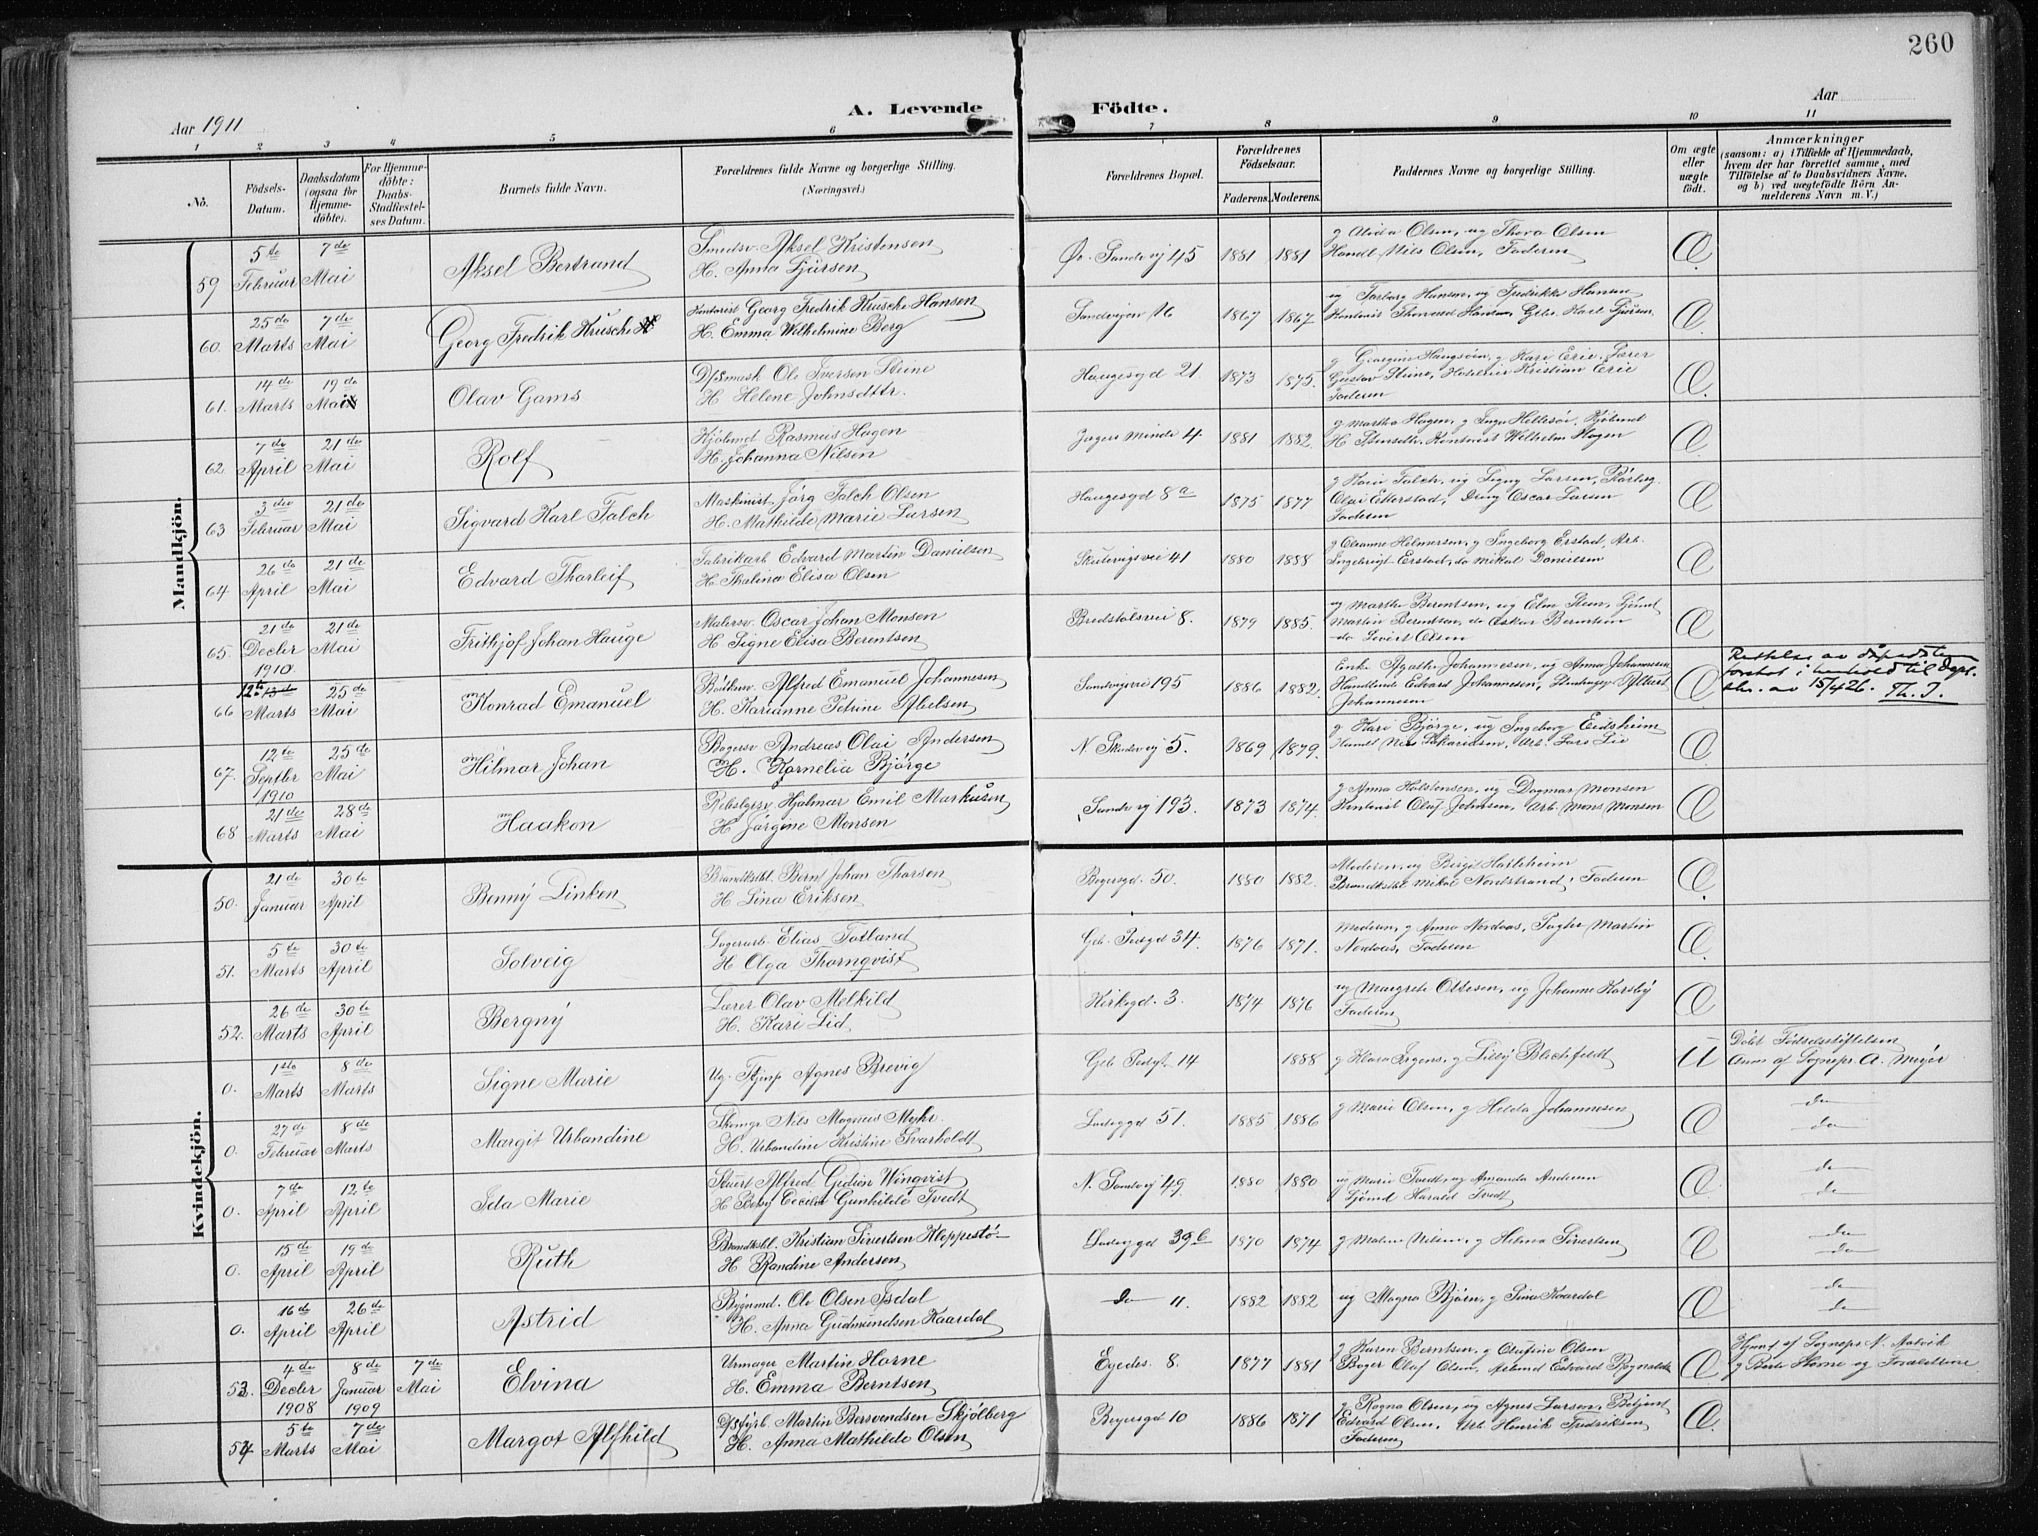 260
Aar 1911
A. Levende Födte.
Aar
1 2 3 4 5 6 7 8 9 10 11
No.
Födsels-Datum.
Daabsdatum (ogsaa for Hjemmedöbte).
For Hjemmedöbte: Daabs Stadfæstelses Datum.
Barnets fulde Navn.
Forældrenes fulde Navne og borgerlige Stilling. (Næringsvei.)
Forældrenes Bopæl.
Forældrenes Födselsaar.
Faderens. Moderens.
Faddernes Navne og borgerlige Stilling.
Om ægte eller uægte födt.
Anmærkninger
(saasom: a) i Tilfælde af Hjemmedaab, hvem der har forrettet samme, med Tilföielse af to Daabsvidners Navne, og b) ved uægtefödte Börn Anmelderens Navn m.V.)
Mandkjön.
59 5te Februar 7de Mai Aksel Bertrand Smedsv. Aksel Kristensen
H. Anna Sjursen Ør. Sandvig 45 1881 1881 g Alida Olsen, ug Thora Olsen
Handl Nils Olsen, Faderen Æ.
60. 25de Marts 7de Mai Georg Fredrik Krusche Kontorist Georg Fredrik Krusche Hansen
H. Emma Wilhelmine Berg Sandvigsv 16 1867 1867 ug Torborg Hansen, ug Fredrikke Hansen
Æ
61. 14de Marts 19de Mai Olav Gams D/smask Ole Iversen Steine
H Helene Johnsdttr. Haugesgd 21 1873 1875. g Georgine Haugsöen, g Kari Erie. Lærer
Gustav Steine, Kristian Erie
Faderen Æ.
62. 7de April 21de Mai Rolf Kjölmd Rasmus Hagen
H. Johanna Nilsen Jægers Minde 4 1881 1882. g Martha Hagen, g Inga Hellesöe, Kjölmd
Kontorist Wilhelm Hagen Æ
63. 3die Februar 21de Mai Sigvard Karl Falch Maskinist Jörg Falch Olsen
H. Mathilde Marie Larsen Haugesgd 8a 1875 1877 Falch, ug Signy Larsen,
Olai Oscar Larsen
Faderen Æ
64. 26de April 21de Mai Edvard Thorleif Fabrikarb Edvard Martin Danielsen
H. Thalina Elisa Olsen Skuteviksvei 41 1880 1888 g Oleanne Helmersen, g Ingeborg Erstad, Arb.
Ingebrigt Erstad, do Mikal Danielsen Æ
65. 21de Decbr 1910 21de Mai Frithjof Johan Hauge Malersv. Oscar Johan Monsen
H. Signe Elisa Berentsen Bredstölsvei 8. 1879 1885. ug Marthe Berentsen, ug Elen Steen, Sjömd
Martin Berntsen, do Oskar Berntsen
do Severt Olsen Æ
66 12te 13de Marts 25de Mai Konrad Emanuel Alfred Emanuel Johannesen
H. Karianne Petrine Abelsen Sandvigsvei 195 1886 1882. Enke Agathe Johannesen, ug Anna Johannesen
Handlende Edvard Johannesen, Albert
Johannesen Æ Rettelse av dåpsdatum
foretat i henhold til Dept.
skr. av 15/4 26. Th. J.
67. 12te Septbr 1910 25de Mai Hilmar Johan Bagersv Andreas Olai Andersen
H. Kornelia Bjørge N. Skudevig 5. 1869 1879. g Kari Bjørge, ug Ingeborg Eidsheim
Handl Nils Arb. Lars Lie Æ
68 21de Marts 28de Mai Haakon Rebslgersv Hjalmar Emil Markusen
H Jörgine Monsen Sandvig 193. 1873 1874. g Anna Holstensen, ug Dagmar Monsen
Kontorist Olaf Johnsen, Arb. Mons Monsen Æ
Kvindekjön.
50. 21de Januar 30te April Benny Linken Brandkstbl. Bernt Johan Thorsen
H Lina Eriksen Bøgersgd. 50. 1880 1882. Moderen, ug Bergit Harleheim
Brandkstbl Mikal Nordstrand, Faderen Æ.
51. 5te Marts 30te April Solveig Lagerarb. Elias Totland
H Olga Thornqvist Geb. Pedsgd 34. 1876 1871. Moderen, g Anna Nordaas, Martin
Nordaas, Faderen Æ
52. 26de Marts 30te April Bergny Lærer Olav Melkild
H. Kari Lid Kirkegd. 3. 1874 1876 ug Margrete Ottesen, ug Johanne Karsby
Faderen Æ
0. 1ste Marts 8de Marts Signe Marie Ug. Agnes Brevig Geb Pedsgt 14 1888 g Klara Irgens, g Lilly Blechfeldt U Döbt Fødselsstiftelsen
Anm af Sognepr. A. Meyer
0. 27de Februar 8de Marts Margit Urbandine Nils Magnus Myhr
H. Urbandine Kristine Svarholdt Ladeggd 51. 1885 1886 g Marie Olsen, g Helda Johannesen Æ do
do
0. 7de April 12te April Ida Marie Stuert Alfred Gideon Winqvist
H Betsy Cecelia Gunhilde Tvedt N. Sandvig 49 1880 1880 ug Marie Tvedt, ug Amanda Andersen
Sjömd Harald Tvedt Æ do
do
0. 15de April 19de April Ruth Brandkstbl. Kristian Sivertsen Kleppestø
H Randine Andersen Ladeggd 39b 1870 1874 g Malene Nilsen, g Helena Sivertsen Æ do
do
0. 16de April 26de April Astrid Bygnmd. Ole Olsen Isdal
H. Anna Gudmundsen Kaardal do 11. 1882 1882 ug Magna Bjöen, g Sina Kaardal Æ do
do
53. 4de Decbr 1908 8de Januar 1909 7de Mai Elvina Urmager Martin Horne
H. Emma Berntsen Egedes. 8. 1877 1881 g Karen Berntsen, g Olufine Olsen
Bager Olaf Olsen, Edvard Rognaldsen Æ Hjmd af Sognepr N.
g Berte Horne og Forældrene
54 5te Marts 7de Mai Margot Alfhild D/sfyrb Martin Bersvendsen Skjölberg
H. Anna Mathilde Olsen Bøgersgd 10 1886 1871 g Ragna Olsen, ug Agnes Larsen, Betjent
Edvard Olsen, Arb Henrik Fredriksen
Faderen Æ